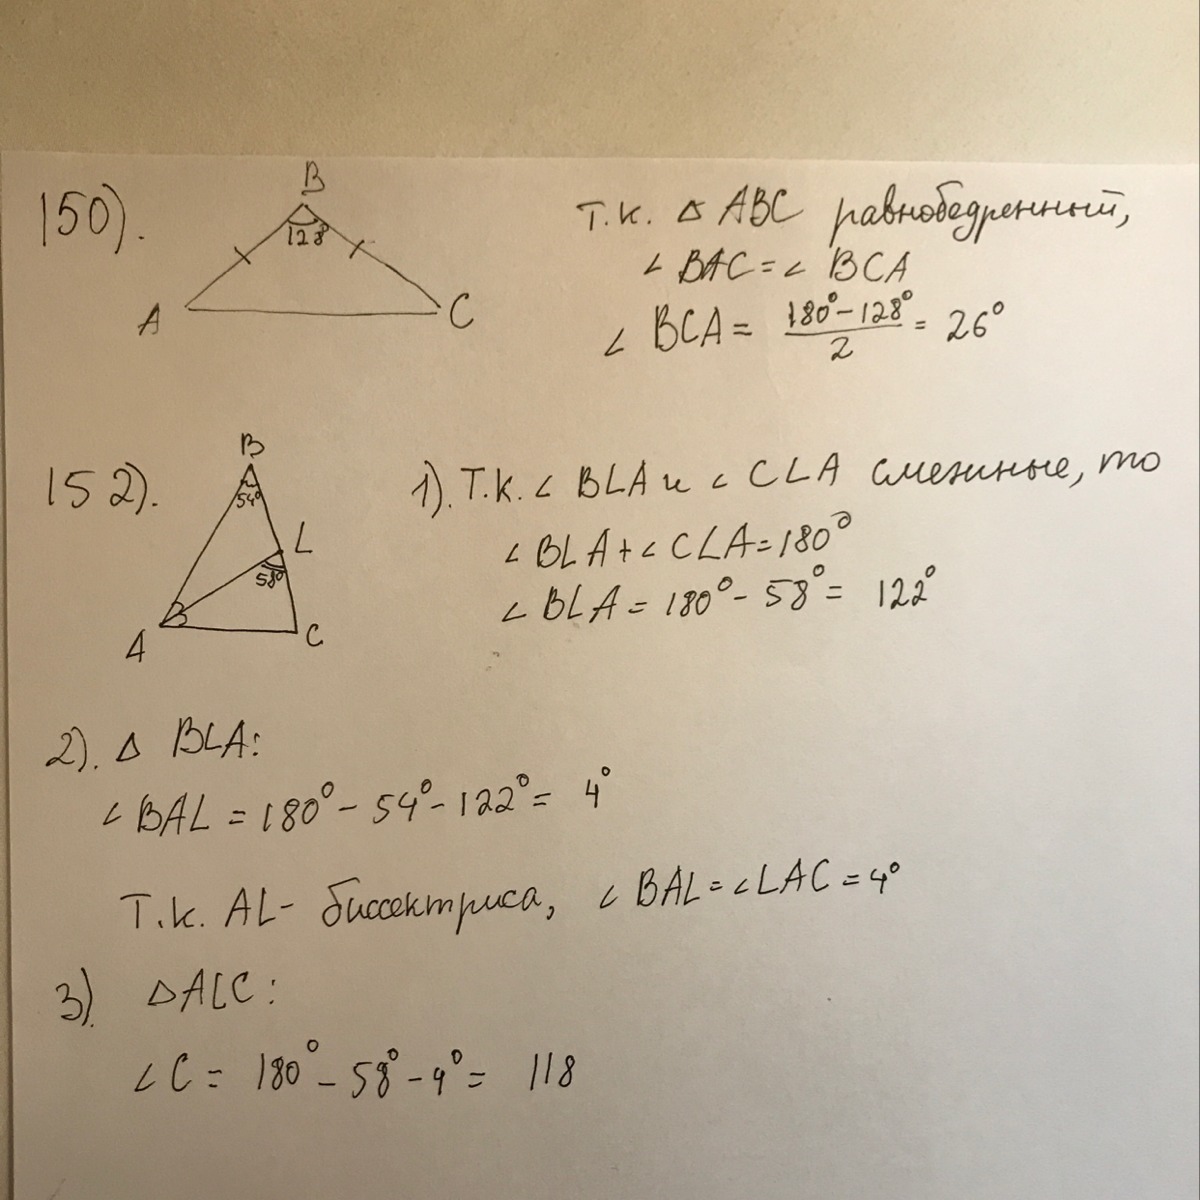 150).
B
128°
A
C
Т.к. △ ABC равнобедренный,
∠ BAC = ∠ BCA
∠ BCA = (180° - 128°)/2 = 26°
152).
B
54°
L
58°
A
C
1). Т.к. ∠ BLA и ∠ CLA смежные, то
∠ BLA + ∠ CLA = 180°
∠ BLA = 180° - 58° = 122°
2). △ BLA:
∠ BAL = 180° - 54° - 122° = 4°
Т.к. AL - биссектриса, ∠ BAL = ∠ LAC = 4°
3). △ ALC:
∠ C = 180° - 58° - 4° = 118